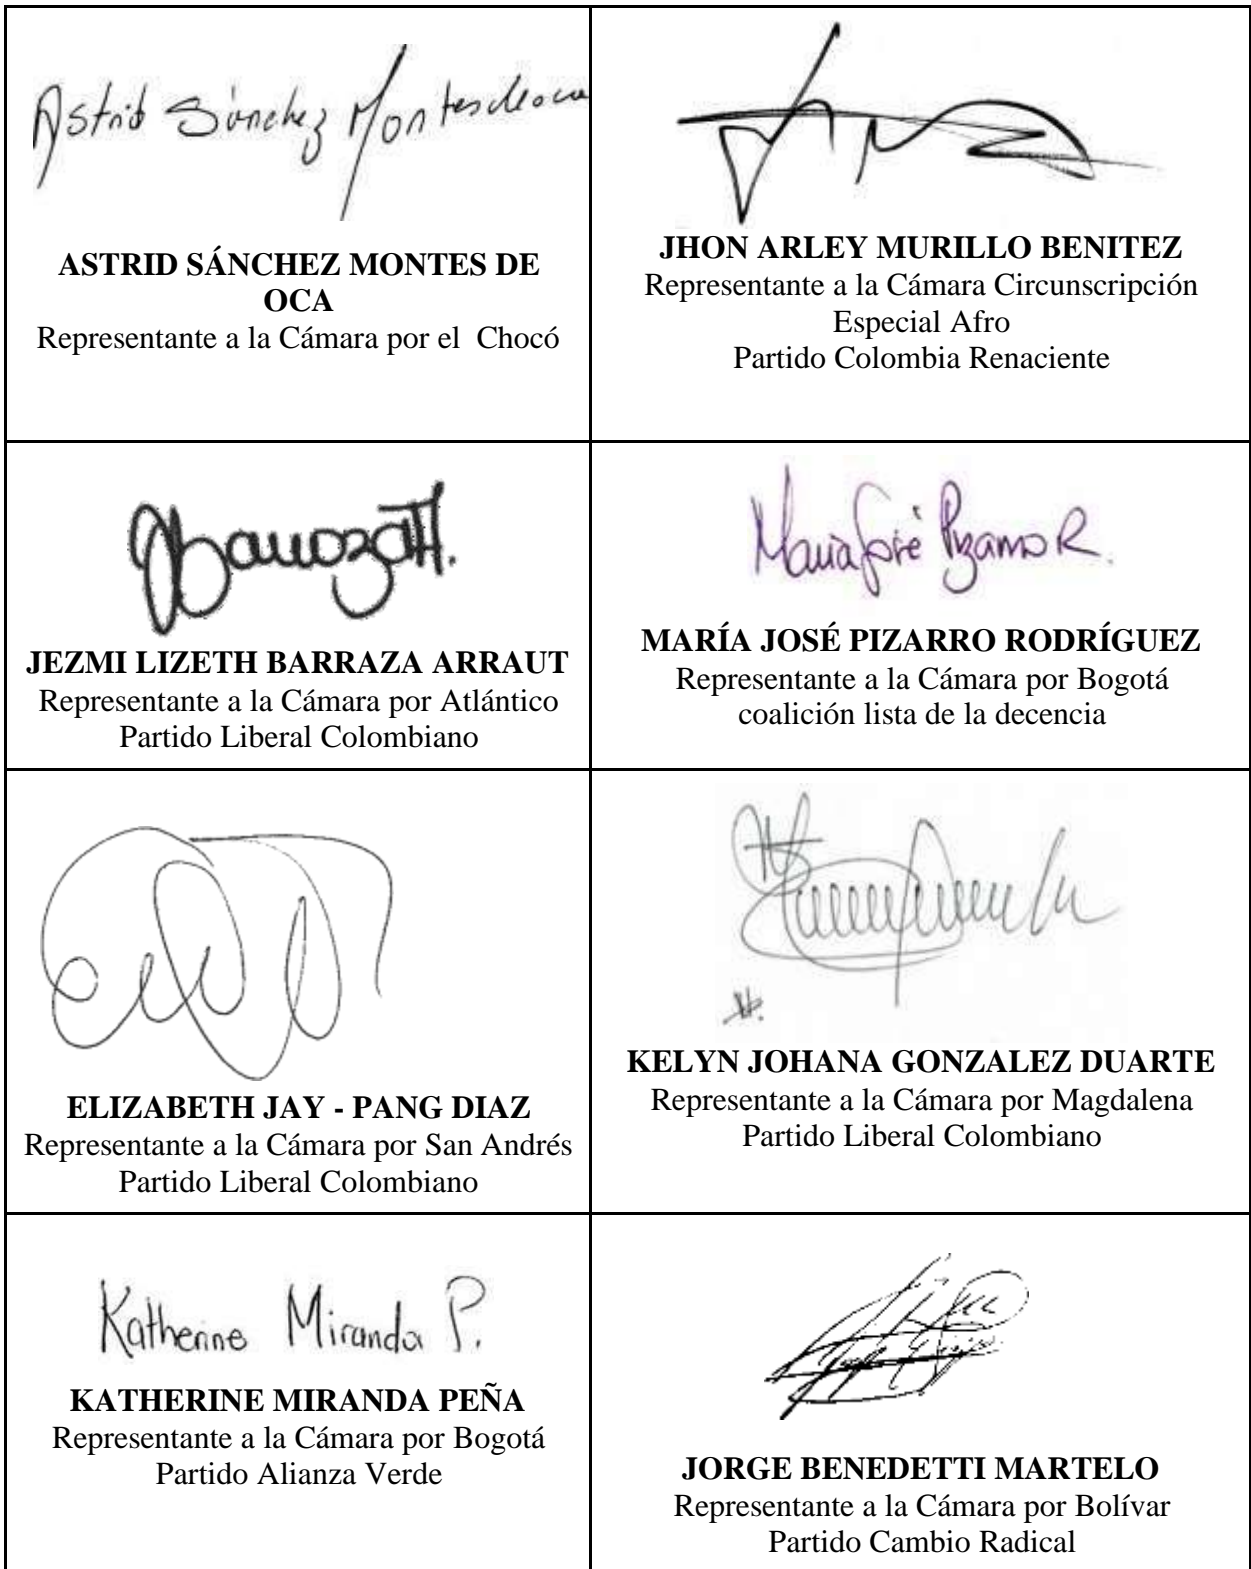 Astrid Sánchez Montesdeoca
ASTRID SÁNCHEZ MONTES DE
OCA
Representante a la Cámara por el Chocó
JHON ARLEY MURILLO BENITEZ
Representante a la Cámara Circunscripción
Especial Afro
Partido Colombia Renaciente
JBarrozaA.
JEZMI LIZETH BARRAZA ARRAUT
Representante a la Cámara por Atlántico
Partido Liberal Colombiano
María José Pizarro R.
MARÍA JOSÉ PIZARRO RODRÍGUEZ
Representante a la Cámara por Bogotá
coalición lista de la decencia
ELIZABETH JAY - PANG DIAZ
Representante a la Cámara por San Andrés
Partido Liberal Colombiano
KELYN JOHANA GONZALEZ DUARTE
Representante a la Cámara por Magdalena
Partido Liberal Colombiano
Katherine Miranda P.
KATHERINE MIRANDA PEÑA
Representante a la Cámara por Bogotá
Partido Alianza Verde
JORGE BENEDETTI MARTELO
Representante a la Cámara por Bolívar
Partido Cambio Radical